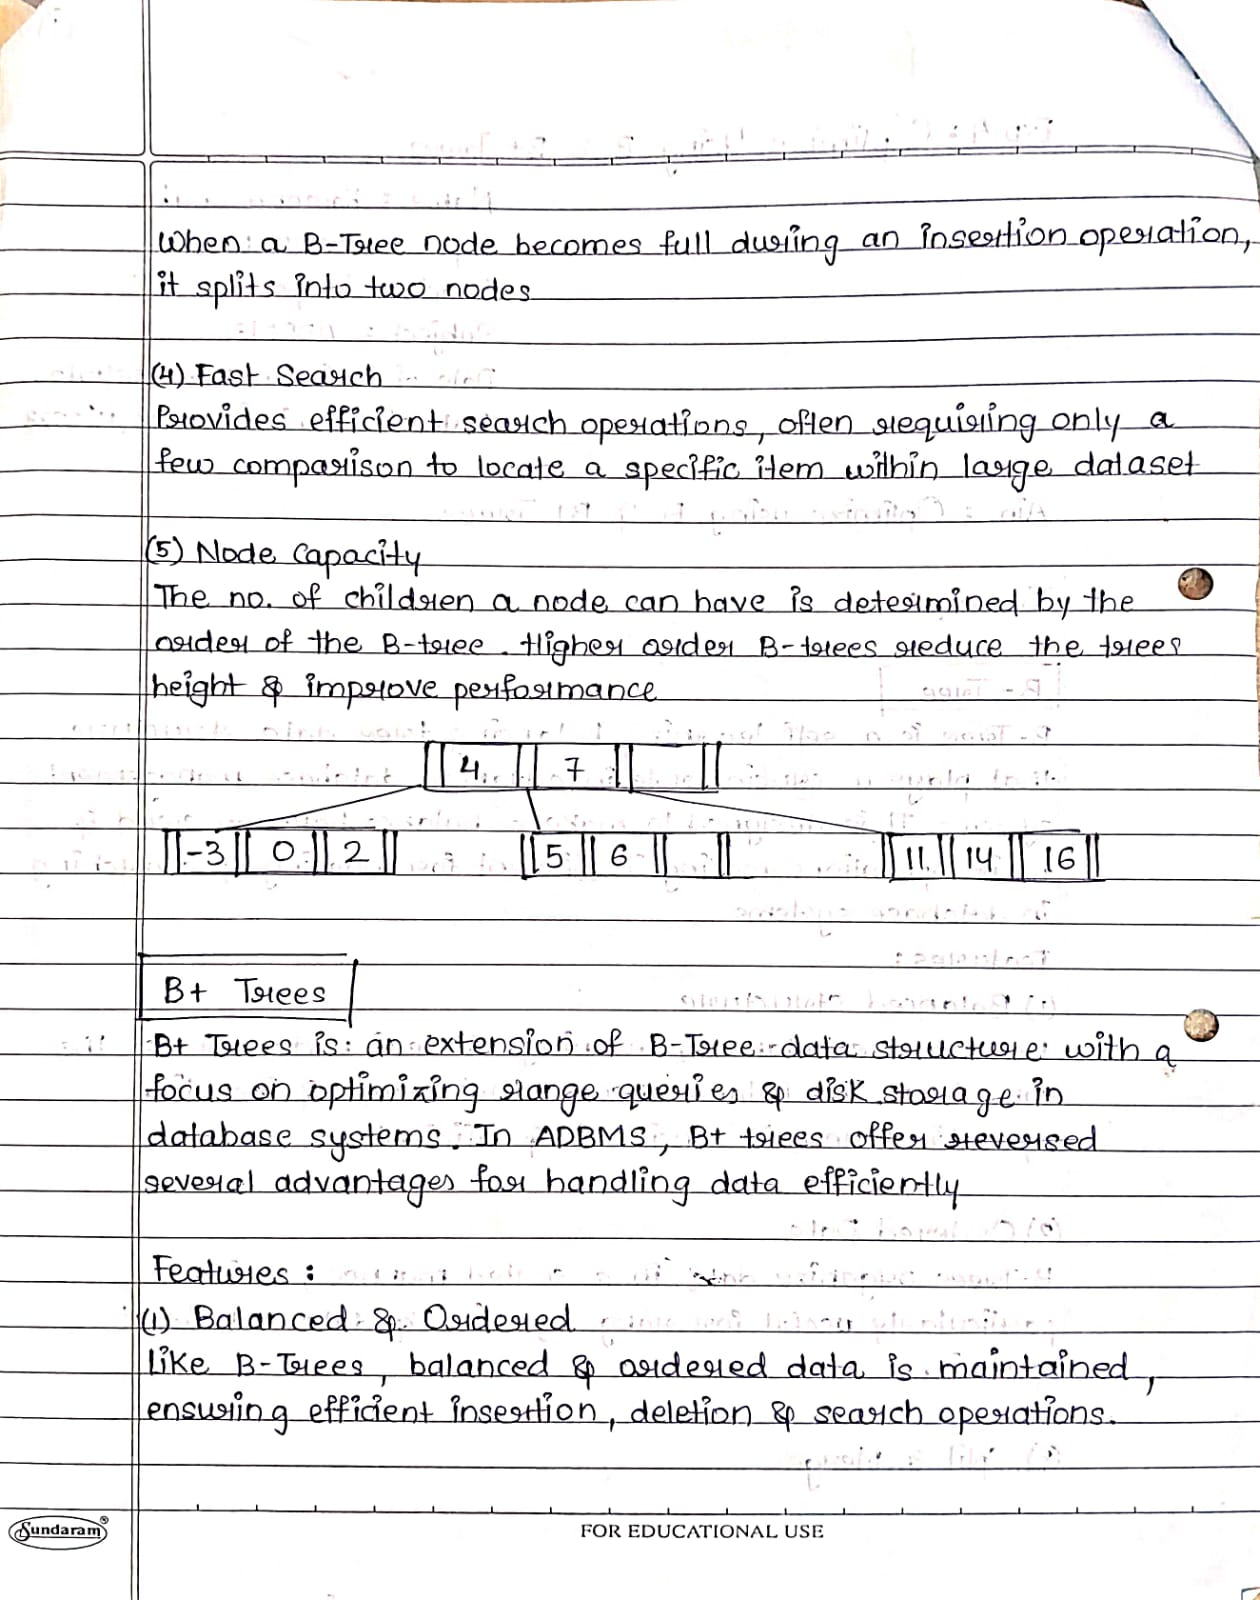 When a B-Tree node becomes full during an insertion operation,
it splits into two nodes
(4) Fast Search
Provides efficient search operations, often requiring only a
few comparison to locate a specific item within large dataset
(5) Node Capacity
The no. of children a node can have is determined by the
order of the B-tree. Higher order B-trees reduce the trees
height & improve performance
4 7
-3 0 2 5 6 11 14 16
B+ Trees
B+ Trees is an extension of B-Tree data structure with a
focus on optimizing range queries & disk storage in
database systems. In ADBMS, B+ trees offer reversed
several advantages for handling data efficiently
Features :
(1) Balanced & Ordered
Like B-Trees, balanced & ordered data is maintained,
ensuring efficient insertion, deletion & search operations.
Sundaram®
FOR EDUCATIONAL USE